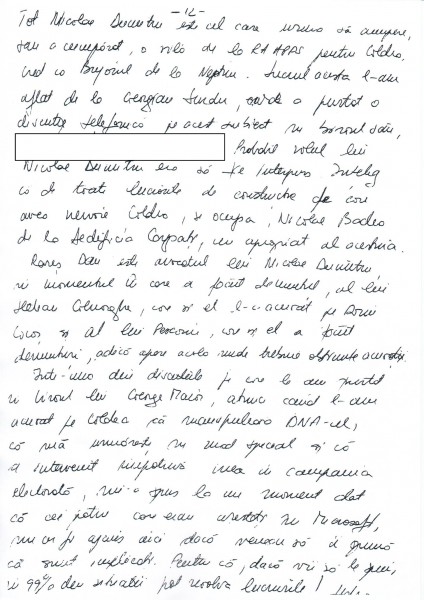 - 12 -
Tot Nicolae Dumitru este cel care urma să cumpere,
sau a cumpărat, o vilă de la RA APPS pentru Coldea,
cred că Bujorul de la Neptun. Lucrul acesta l-am
aflat de la Georgian Surdu, care a purtat o
discuție telefonică pe acest subiect în biroul său,
Probabil rolul lui
Nicolae Dumitru era să fie interpus Intelig
că de toate lucrările de construcție de care
avea nevoie Coldea, se ocupa, Nicolae Badea
de la Aedificia Carpați, un apropiat al acestuia.
Rareș Dan este avocatul lui Nicolae Dumitru,
și momentul în care a făcut denunțul, al lui
Stelian Gheorghe, care și el l-a acuzat pe Romi
și al lui care și el a făcut
denunțuri, adică apare acolo unde trebuie obținute acuzații
Într-una din discuțiile pe care le-am purtat
în biroul lui George Maior, atunci când l-am
acuzat pe Coldea că manipulează DNA-ul,
că mă urmărește în mod special și că
a intervenit împotriva mea în campania
electorală, mi-a spus la un moment dat
că cei patru care erau arestați în Microsoft,
nu ar fi ajuns aici dacă veneau să-i spună
că sunt implicați. Pentru că, dacă vii să le spui,
în 99% din situații pot rezolva lucrurile!